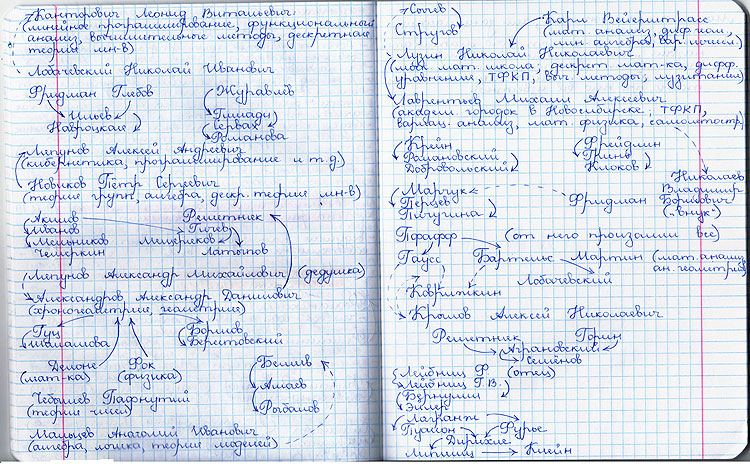 Канторович Леонид Витальевич
(линейное программирование, функциональный
анализ, вычислительные методы, дескретная
теория мн-в)
Лобачевский Николай Иванович
Фридман Глебов
Журавлёв
Ильев
Навроцкая
Гимади
Сервах
Романова
Ляпунов Алексей Андреевич
(кибернетика, программирование и т.д.)
Новиков Пётр Сергеевич
(теория групп, алгебра, дескр. теория мн-в)
Акилов
Решетняк
Иванов
Гичев
Мельников
Мещеряков
Чемёркин
Латыпов
Ляпунов Александр Михайлович (дедушка)
Александров Александр Данилович
(хроногеометрия, геометрия)
Гуц
Шаламова
Борисов
Берестовский
Делоне
(мат-ка)
Фок
(физика)
Белим
Чебышев Пафнутий
(теория чисел)
Мальцев Анатолий Иванович
(алгебра, логика, теория моделей)
Сычёв
Стругов
Карл Вейерштрасс
(мат. анализ, диф. геом,
лин. алгебра, вар. исчисл)
Лузин Николай Николаевич
(моск. мат. школа, дескрет. мат-ка, дифф.
уравнения, ТФКП, выч. методы; лузитании)
Лаврентьев Михаил Алексеевич
(академ. городок в Новосибирске, ТФКП,
вариац. анализ, мат. физика,
Крейн
Романовский
Добровольский
Фрейдлин
Клоков
Марчук
Перцев
Пичугина
Фридман
Николаев
Владимир
Борисович
("внук")
Пфафф
(от него произошли все)
Гаусс
Бартельс
Мартин
(мат. анализ,
ан. геометрия)
Лобачевский
Коврижкин
Крылов Алексей Николаевич
Решетняк
Горин
Аграновский
Семёнов
Лейбниц Ф. (отец)
Лейбниц Г.В.
Бернулли
Эйлер
Лагранж
Пуассон
Фурье
Дирихле
Липшиц
Клейн